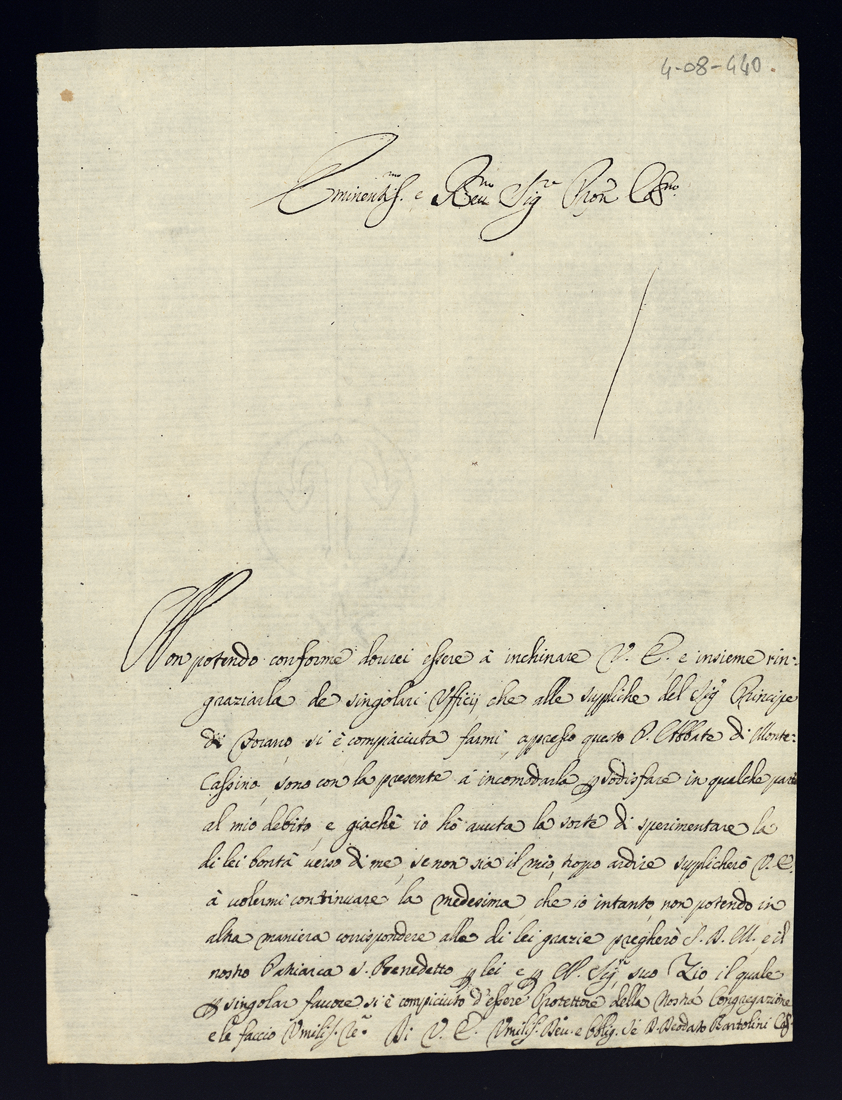 4-08-440.
Eminentiss.mo e Reu.mo Sig.re Pron Col.mo
Non potendo conforme dourei essere à inchinare V. E. e insieme rin:
graziarla de singolari Vfficij che alle suppliche del Sig.r Principe
di si è compiaciuta farmi appresso questo P. Abbate di Monte:
Cassino, sono con la presente à incomodarla p sodisfare in qualche parte
al mio debito, e giachè io hò auuta la sorte di sperimentare la
di lei bontà uerso di me, se non sia il mio troppo ardire supplicherò V. E.
à uolermi continuare la medesima, che io intanto non potendo in
altra maniera corrispondere alle di lei grazie pregherò S. D. M. e il
nostro Patriarca S. Benedetto p lei e p M. Sig.r suo Zio il quale
p singolar fauore si è compiciuto d'essere Protettore della Nostra Congregazione
e le faccio Vmiliss. Di V. E. Vmiliss. Deu. e Obblig. Se D. Deodato Bartolini Cass.